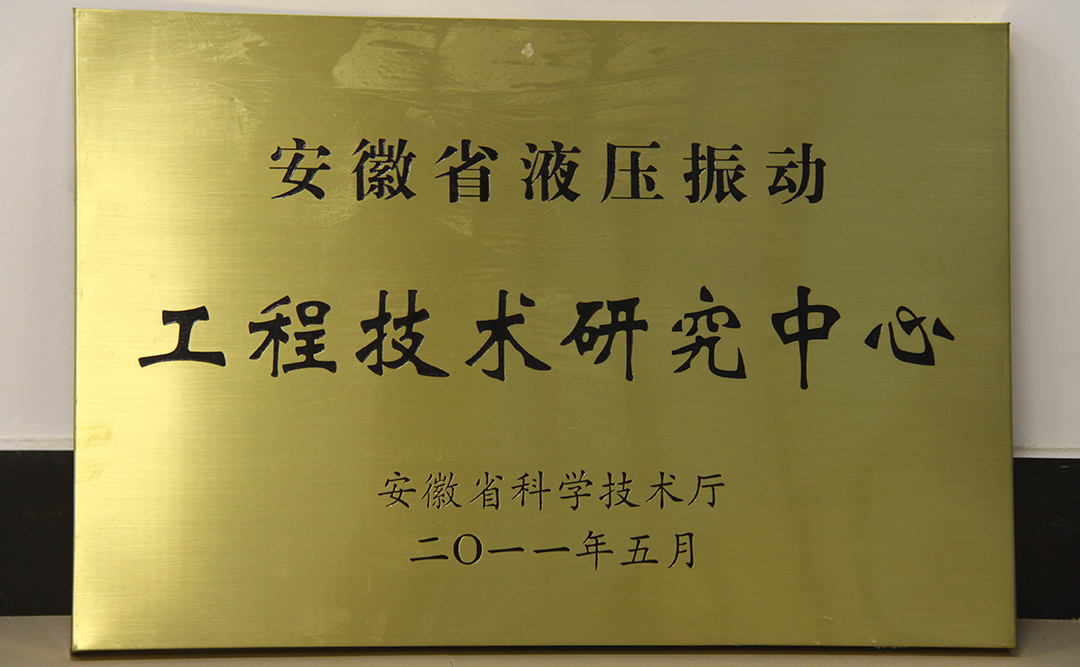 安徽省液压振动
工程技术研究中心
安徽省科学技术厅
二〇一一年五月